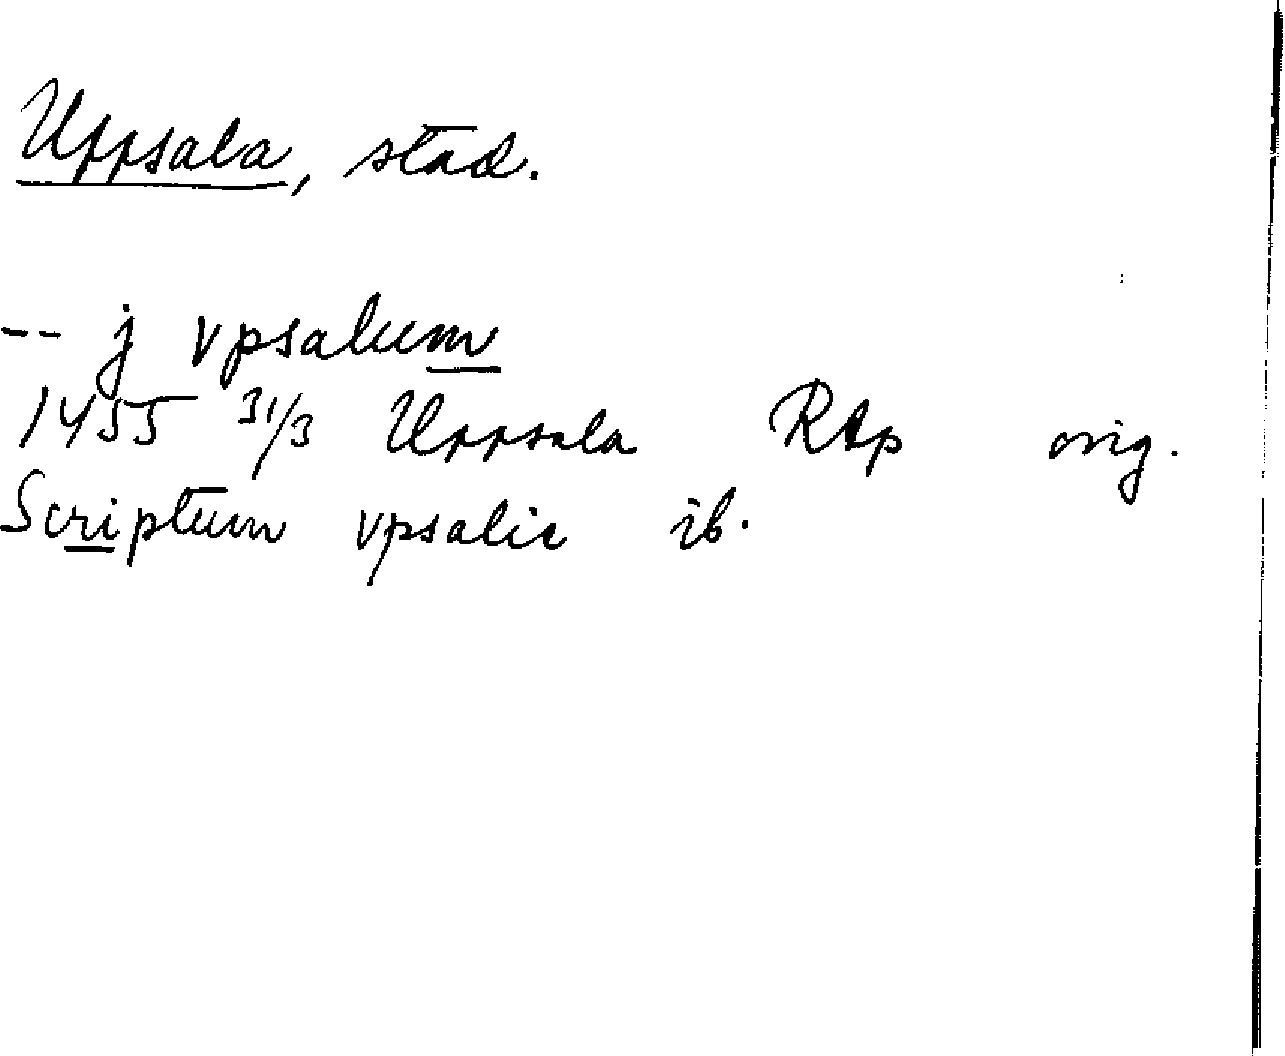 Uppsala, stad.
-- j vpsalum
1455 31/3 Uppsala RAp orig.
Scriptum vpsalie ib.